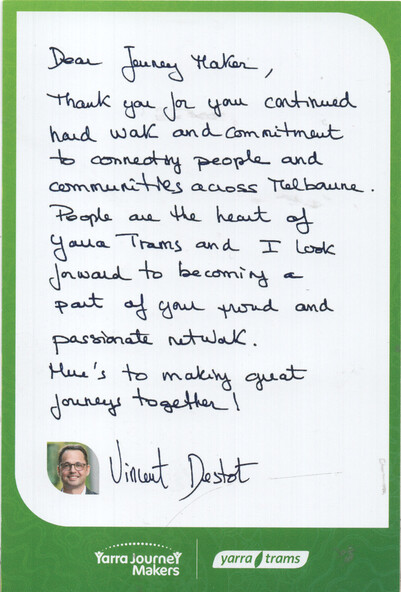 Dear Journey Maker,
Thank you for your continued
hard work and commitment
to connecting people and
communities across Melbourne.
People are the heart of
Yarra Trams and I look
forward to becoming a
part of your proud and
passionate network.
Here's to making great
journeys together!
Vincent Destot
Yarra Journey
Makers
yarra trams